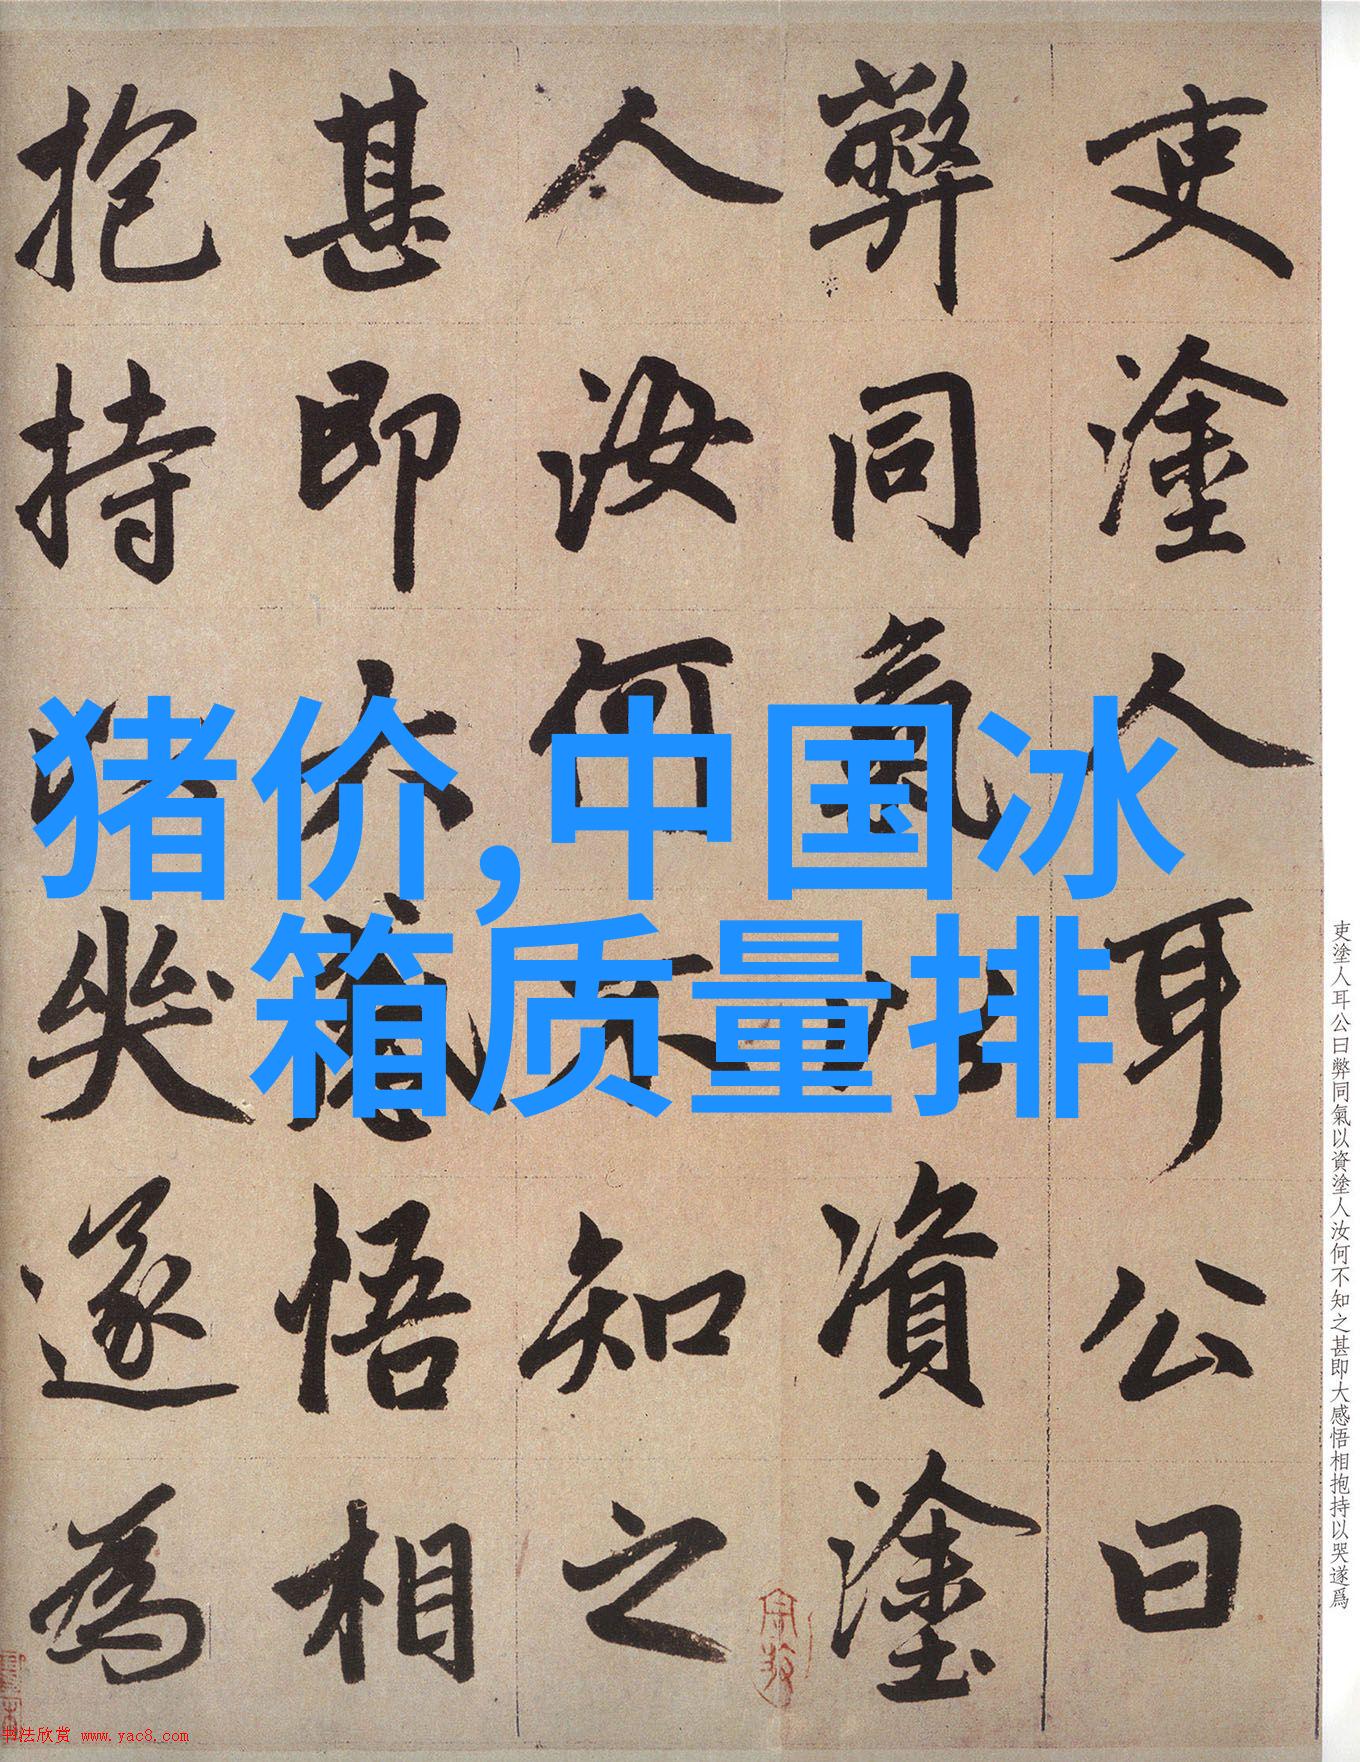 吏塗人耳公曰
弊同氣以資塗
人汝何不知之
甚即大感悟相
抱持以哭遂為
猪价,中国冰
箱质量排
吏塗人耳公曰弊同氣以資塗人汝何不知之甚即大感悟相抱持以哭遂爲
书法欣赏 www.yac8.com